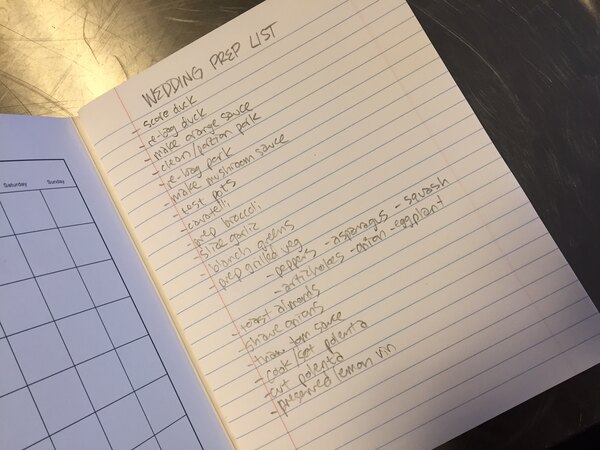 Saturday Sunday
WEDDING PREP LIST
- score duck
- re-bag duck
- make orange sauce
- clean/portion pork
- re-bag pork
- make mushroom sauce
- rost pots
- cavatelli
- prep broccoli
- slice garlic
- blanch greens
- prep grilled veg
- peppers - asparagus - squash
- artichokes - onion - eggplant
- roast almonds
- shave onions
- thaw tom sauce
- cook/set polenta
- cut polenta
- preserved lemon vin